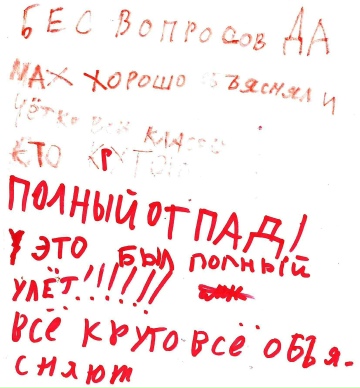 БЕС ВОПРОСОВ ДА
МАХ ХОРОШО ОБЪЯСНЯЛ И
ЧЁТКО ВСЁ КЛАССО
КТО КРУТОЙ
ПОЛНЫЙ ОТПАД!
У ЭТО БЫЛ ПОЛНЫЙ
УЛЁТ!!!!!!
ВСЁ КРУТО ВСЁ ОБЪЯ-
СНЯЮТ